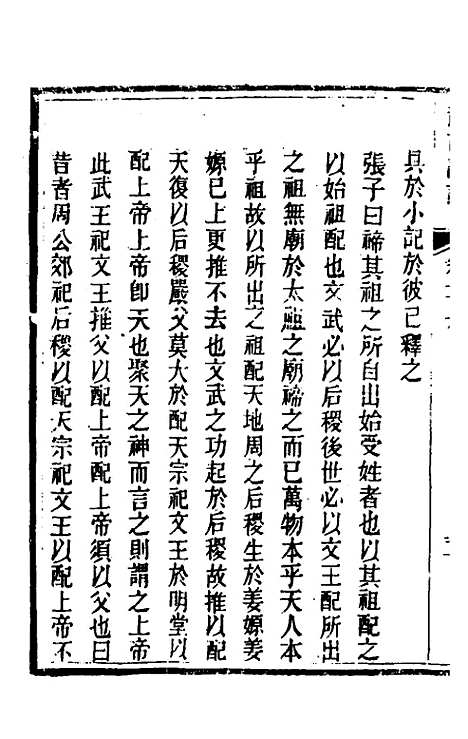 具於小記於彼已釋之
張子曰禘其祖之所自出始受姓者也以其祖配之
以始祖配也文武必以后稷後世必以文王配所出
之祖無廟於太祖之廟禘之而已萬物本乎天人本
乎祖故以所出之祖配天地周之后稷生於姜嫄姜
嫄已上更推不去也文武之功起於后稷故推以配
天復以后稷嚴父莫大於配天宗祀文王於明堂以
配上帝上帝卽天也聚天之神而言之則謂之上帝
此武王祀文王推父以配上帝配上帝須以父也曰
昔者周公郊祀后稷以配天宗祀文王以配上帝不